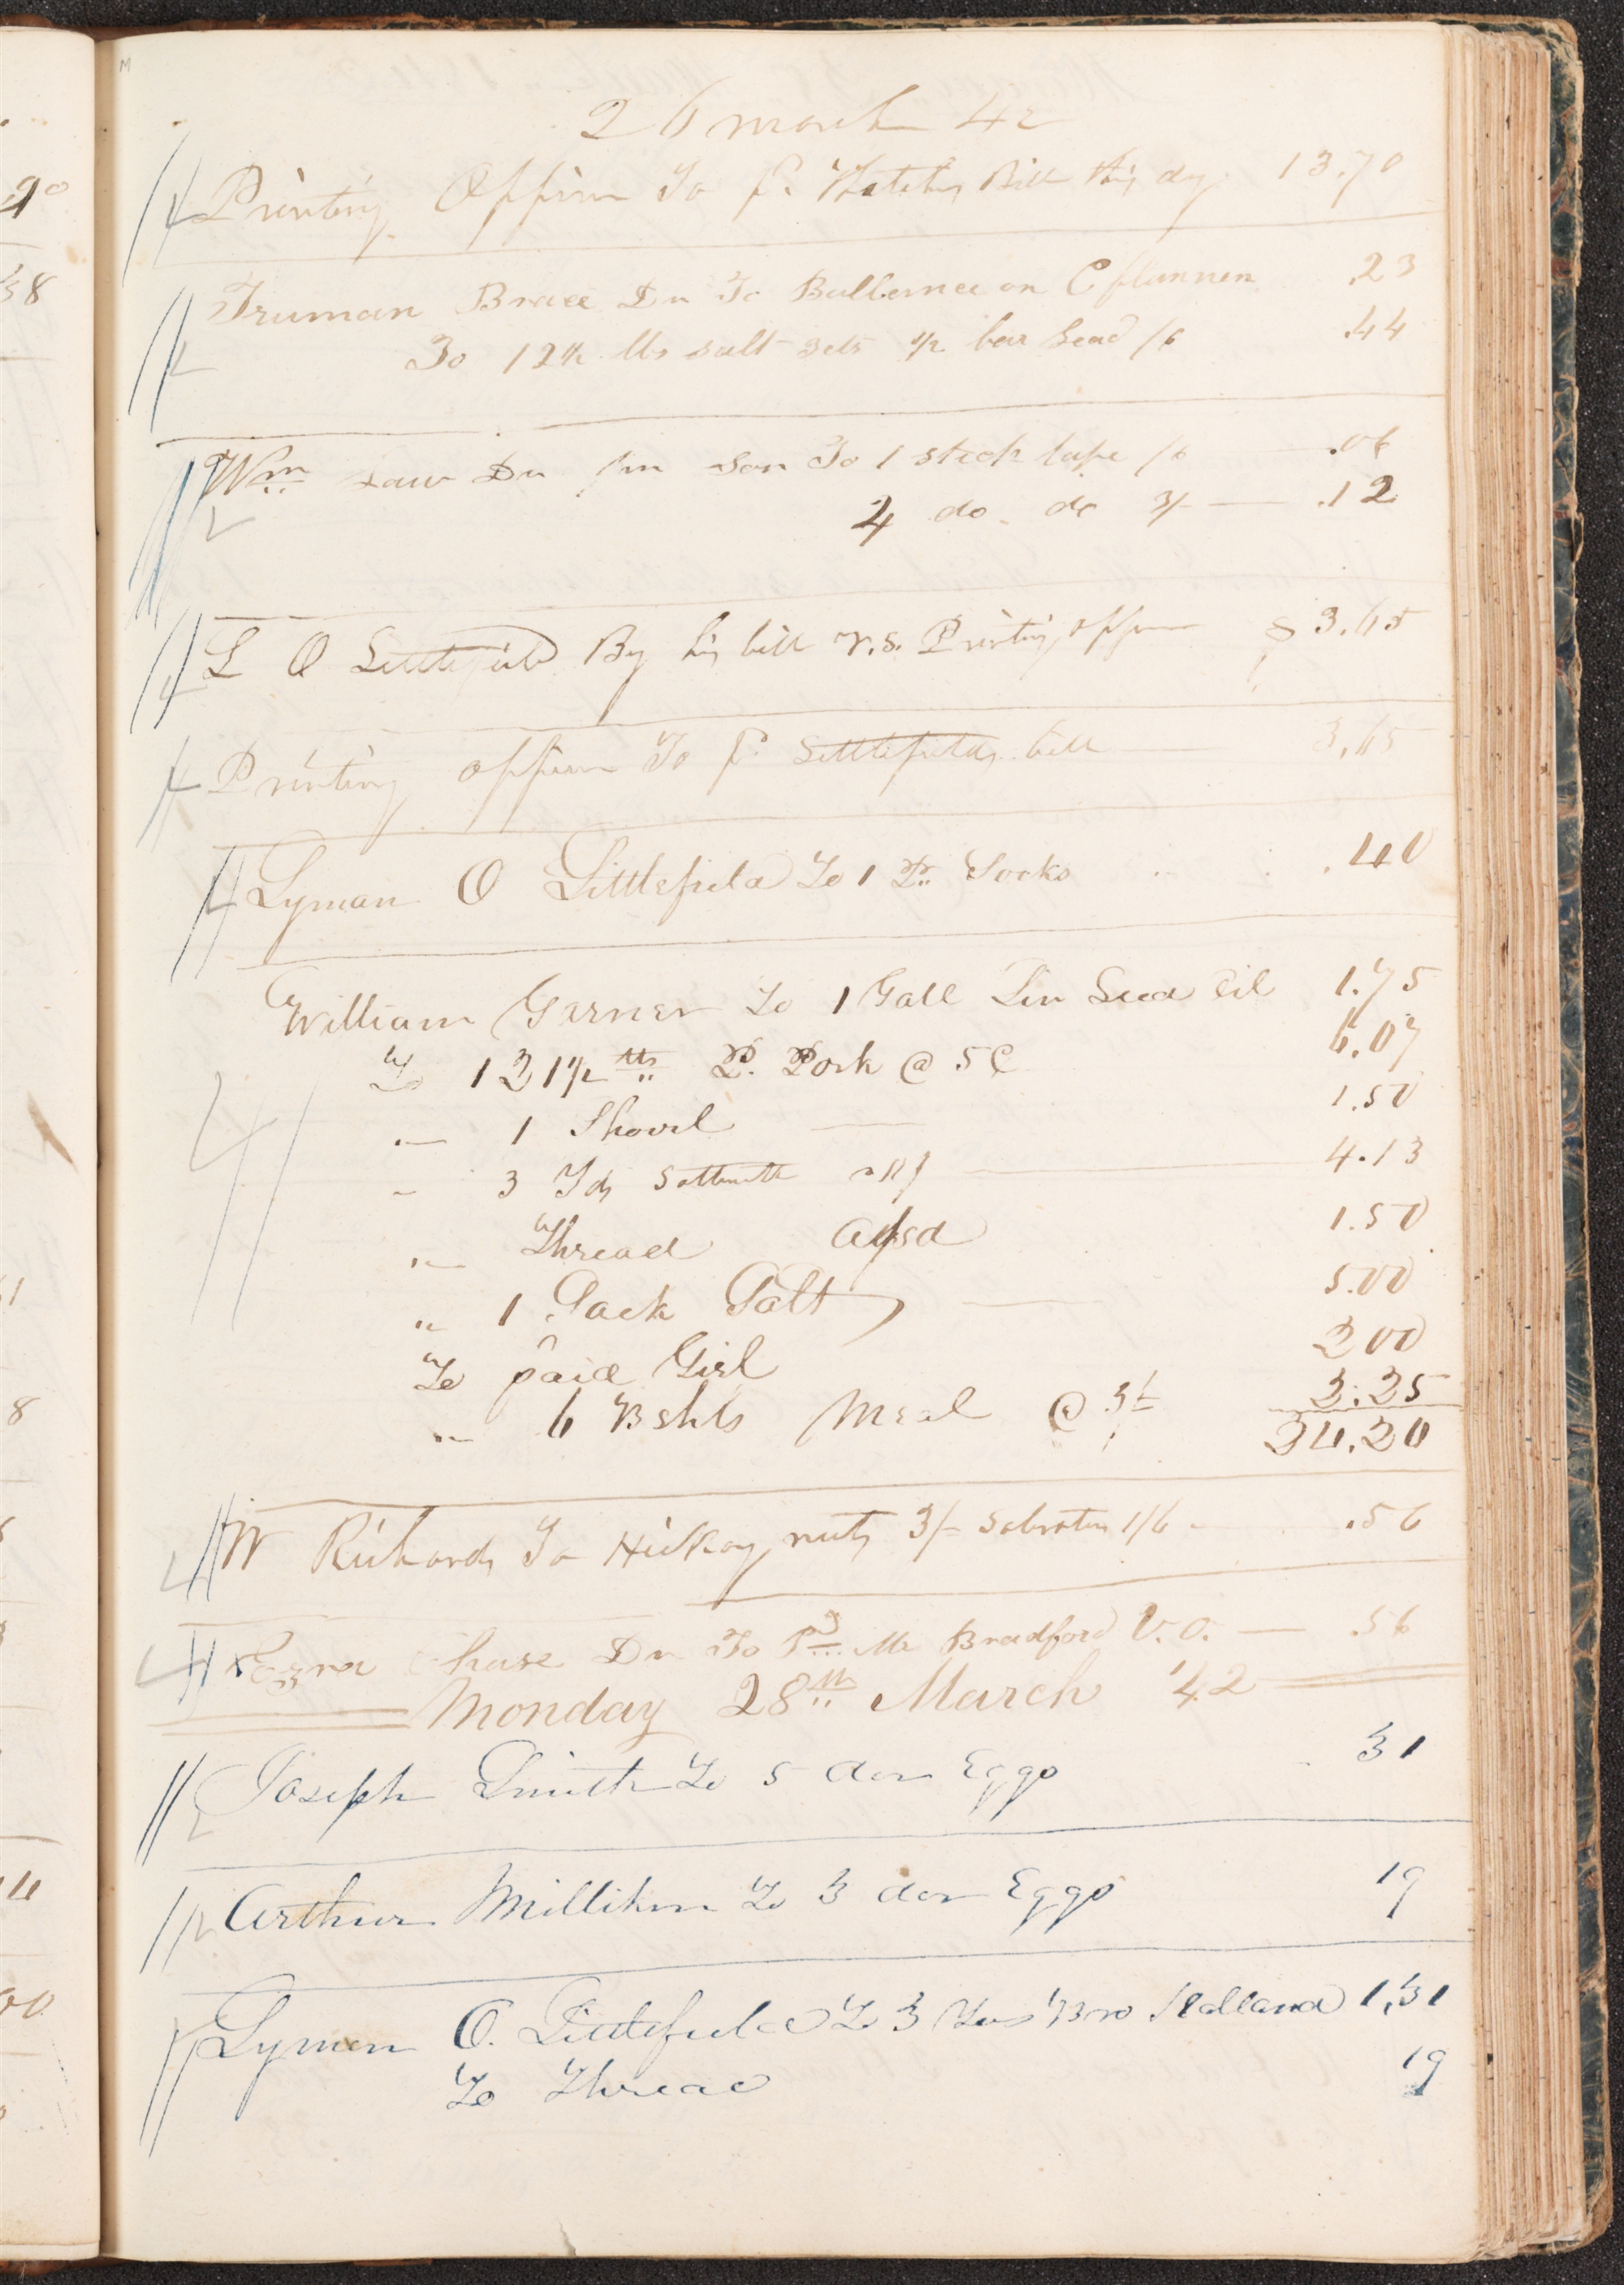 26 march 42
Printing Office To P. Hatchs Bill this day 13.70
Truman Brace Dr To Ballance on C flannen .23
To 12½ lbs salt 3cts ½ bar Lead /6 .44
Wm Law Dr pr Son To 1 stick tape /6 .06
2 do do 3/- .12
L O Littlefield By his bill v.s. Printing office $ 3.65
Printing office To P. Littlefields bill 3.65
Lyman O Littlefield To 1 Pr Socks .40
William Garner To 1 Gall Lin Seed Oil 1.75
To 121½ lbs P. Pork @ 5 C 6.07
" 1 Shovel 1.50
" 3 Yds Sattinett 11/ 4.13
" Thread 1.50
" 1 Sack Salt 5.00
To paid Girl 2 00
" 6 Bshls Meal @ 3/- 2.25
24.20
W Richards To Hickory nuts 3/- Salratus 1/6 .56
Ezra Chase Dr To Pd Mr Bradford V.O. .56
Monday 28th March '42
Joseph Smith To 5 doz Eggs 31
Arthur Millikin To 3 doz Eggs 19
Lyman O. Littlefield To 3 Yds Bro Holland 1,31
To Thread 19
90
38
8
00